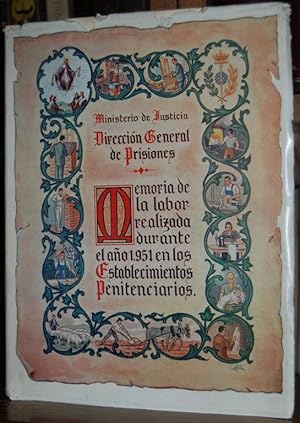 Ministerio de Justicia
Dirección General
de Prisiones
Memoria de
la labor
realizada
durante
el año 1951 en los
Establecimientos
Penitenciarios.